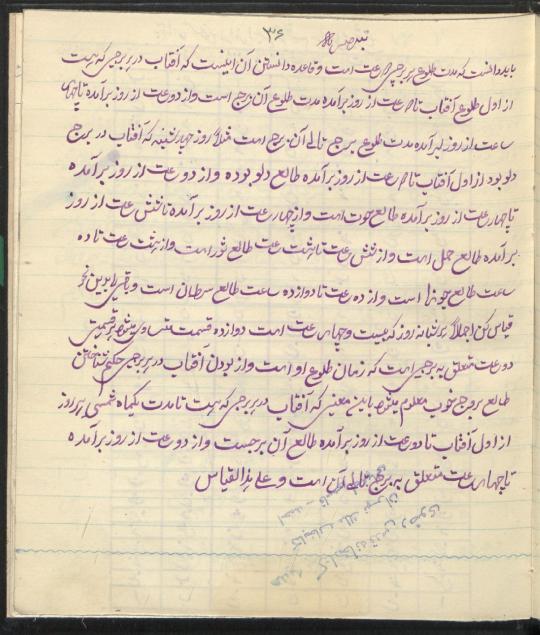 ۳۶
باید دانست که مدت طلوع هر برجی دو ساعت است و قاعده دانستن آن اینست که آفتاب در هر برجی که هست
از اول طلوع آفتاب تا دو ساعت از روز برآمده مدت طلوع آن برج است و از دو ساعت از روز برآمده تا چهار
ساعت از روز برآمده مدت طلوع برج تالی آن برج است مثلا روز چهارشنبه که آفتاب در برج
دلو بود از اول آفتاب تا دو ساعت از روز برآمده طالع دلو بوده و از دو ساعت از روز برآمده
تا چهار ساعت از روز برآمده طالع حوت است و از چهار ساعت از روز برآمده تا شش ساعت از روز
برآمده طالع حمل است و از شش ساعت تا هشت ساعت طالع ثور است و از هشت ساعت تا ده
ساعت طالع جوزا است و از ده ساعت تا دوازده ساعت طالع سرطان است و باقی را بدین نحو
قیاس کن اجمالا هر شبانه روز که بیست و چهار ساعت است دوازده قسمت متساوی میشود هر قسمتی
دو ساعت متعلق به برجی است که زمان طلوع او است و از بودن آفتاب در هر برجی حکم شناختن
طالع بروج خوب معلوم میشود باین معنی که آفتاب در هر برجی که هست تا مدت یکماه شمسی هر روز
از اول آفتاب تا دو ساعت از روز برآمده طالع آن برجست و از دو ساعت از روز برآمده
تا چهار ساعت متعلق به برج تالی آن است و علی هذا القیاس